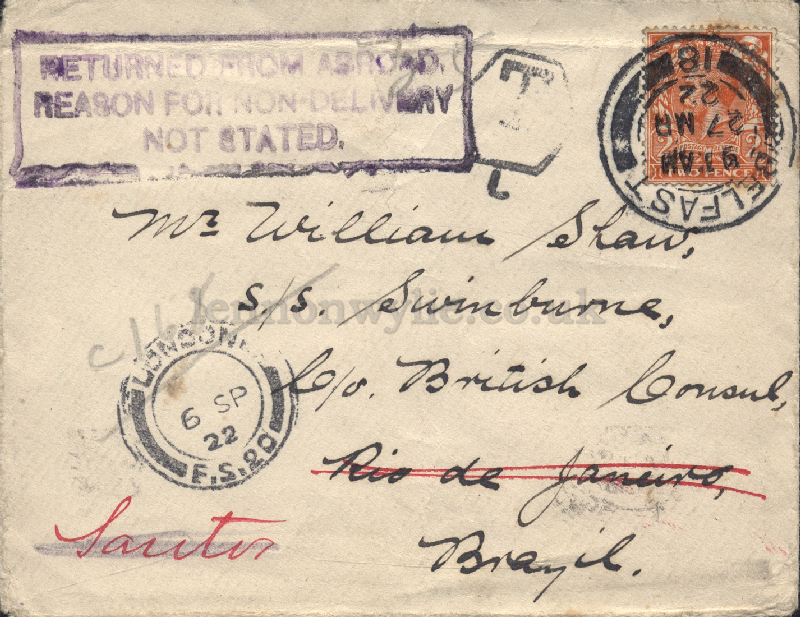 RETURNED FROM ABROAD.
REASON FOR NON-DELIVERY
NOT STATED.
T
BELFAST
9 3 AM
27 MR
22
81
TWOPENCE
Mr William Shaw,
S/S. Swinburne,
lennonwylie.co.uk
C/o. British Consul,
Rio de Janeiro,
Brazil.
LONDON
6 SP
22
F.S.20
Santos